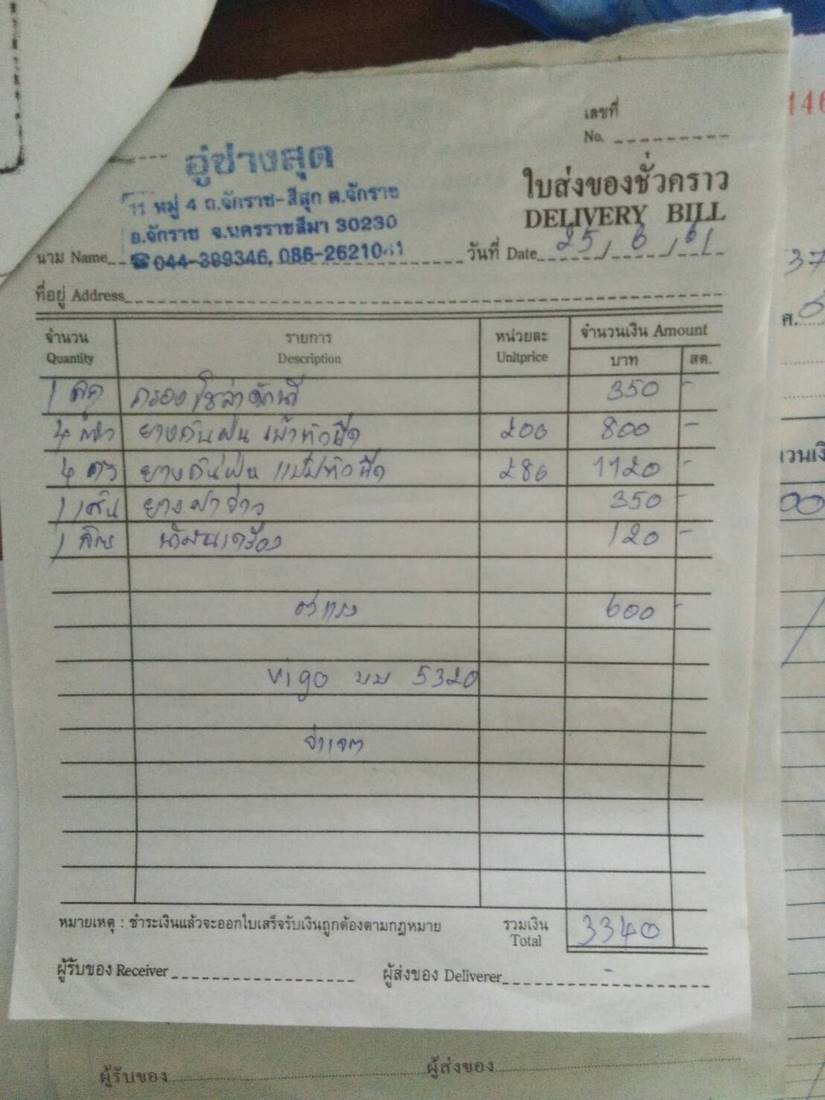 446
เลขที่
No.
อู่ช่างสุด
11 หมู่ 4 ถ.จักราช-สีสุก ต.จักราช
อ.จักราช จ.นครราชสีมา 30230
☎044-399346, 086-2621041
ใบส่งของชั่วคราว
DELIVERY BILL
นาม Name
วันที่ Date 25/6/61
ที่อยู่ Address
37
ศ.
จำนวน Quantity รายการ Description หน่วยละ Unitprice จำนวนเงิน Amount
บาท สต.
1 350 -
4 ยางกันฝุ่น เบ้าหัวฉีด 200 800 -
4 ตัว ยางกันฝุ่น แป๊ปหัวฉีด 280 1120 -
1 เส้น 350 -
1 ลิตร น้ำมันเครื่อง 120 -
ค่าแรง 600 -
Vigo บบ 5320
หมายเหตุ : ชำระเงินแล้วจะออกใบเสร็จรับเงินถูกต้องตามกฎหมาย
รวมเงิน Total 3340
ผู้รับของ Receiver ผู้ส่งของ Deliverer -
ผู้รับของ ผู้ส่งของ